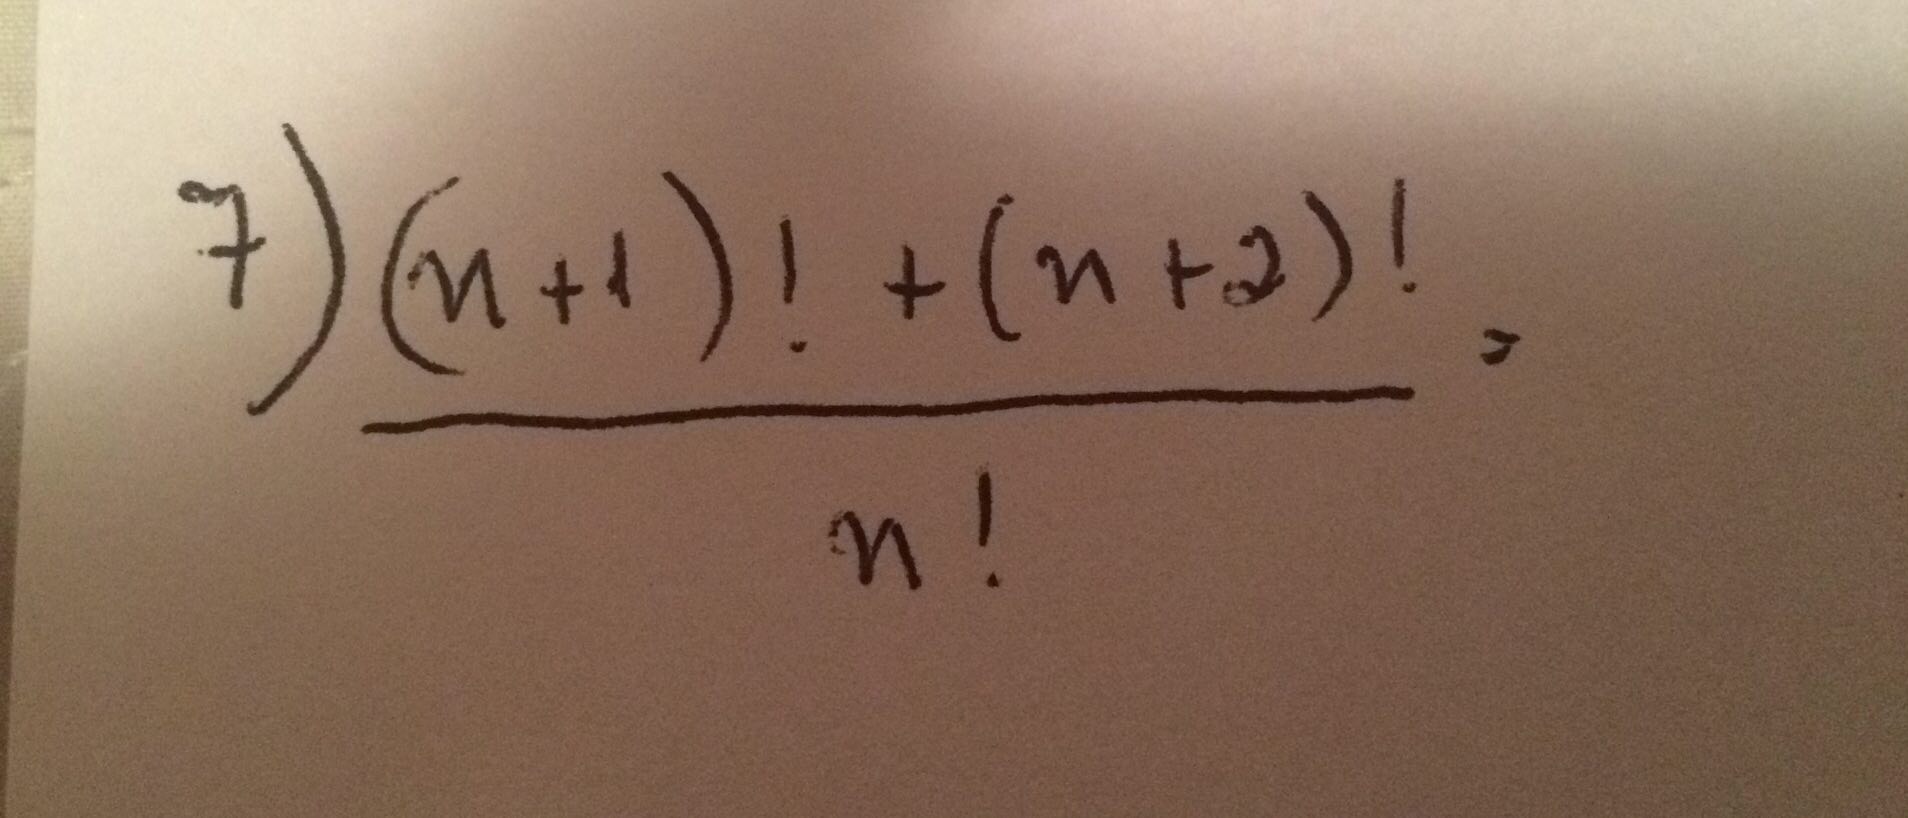 7) (n+1)! + (n+2)! =
n!